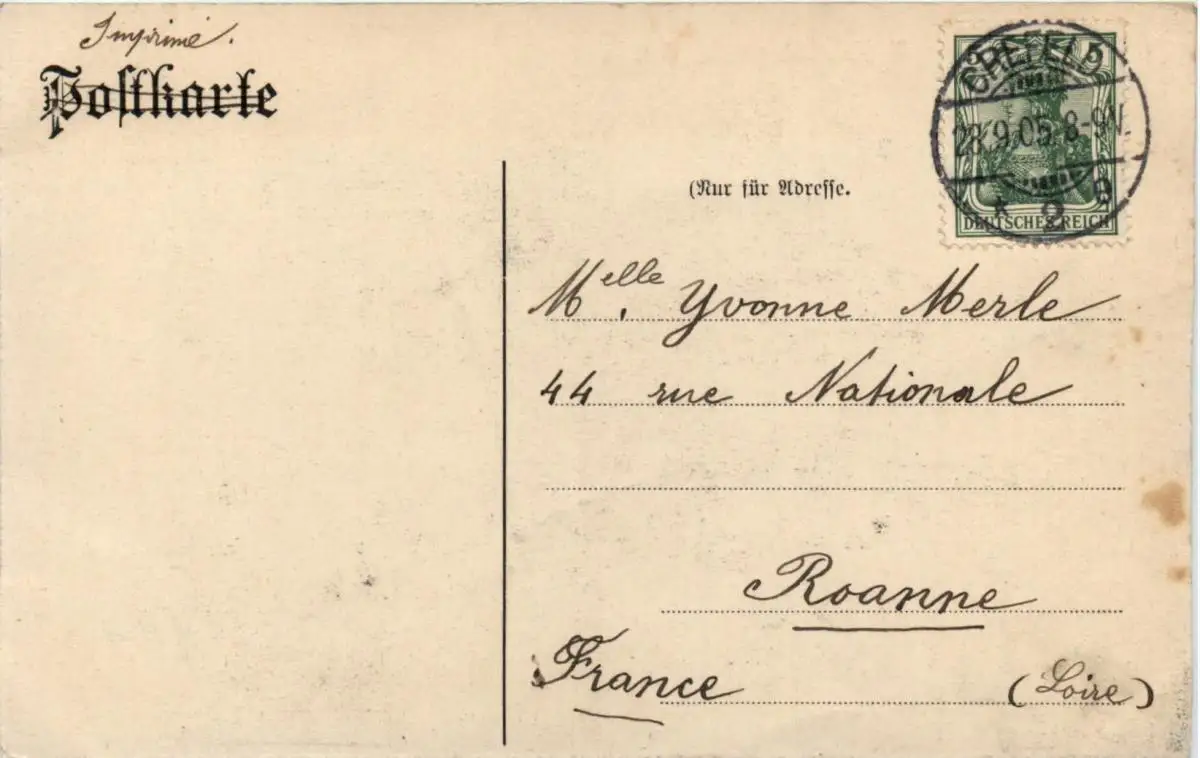 Imprimé.
Postkarte
(Nur für Adresse.
5 5
CREFELD
28.9.05. 8-9V.
* 2 B
DEUTSCHES REICH
Melle. Yvonne Merle
44 rue Nationale
Roanne
France (Loire)